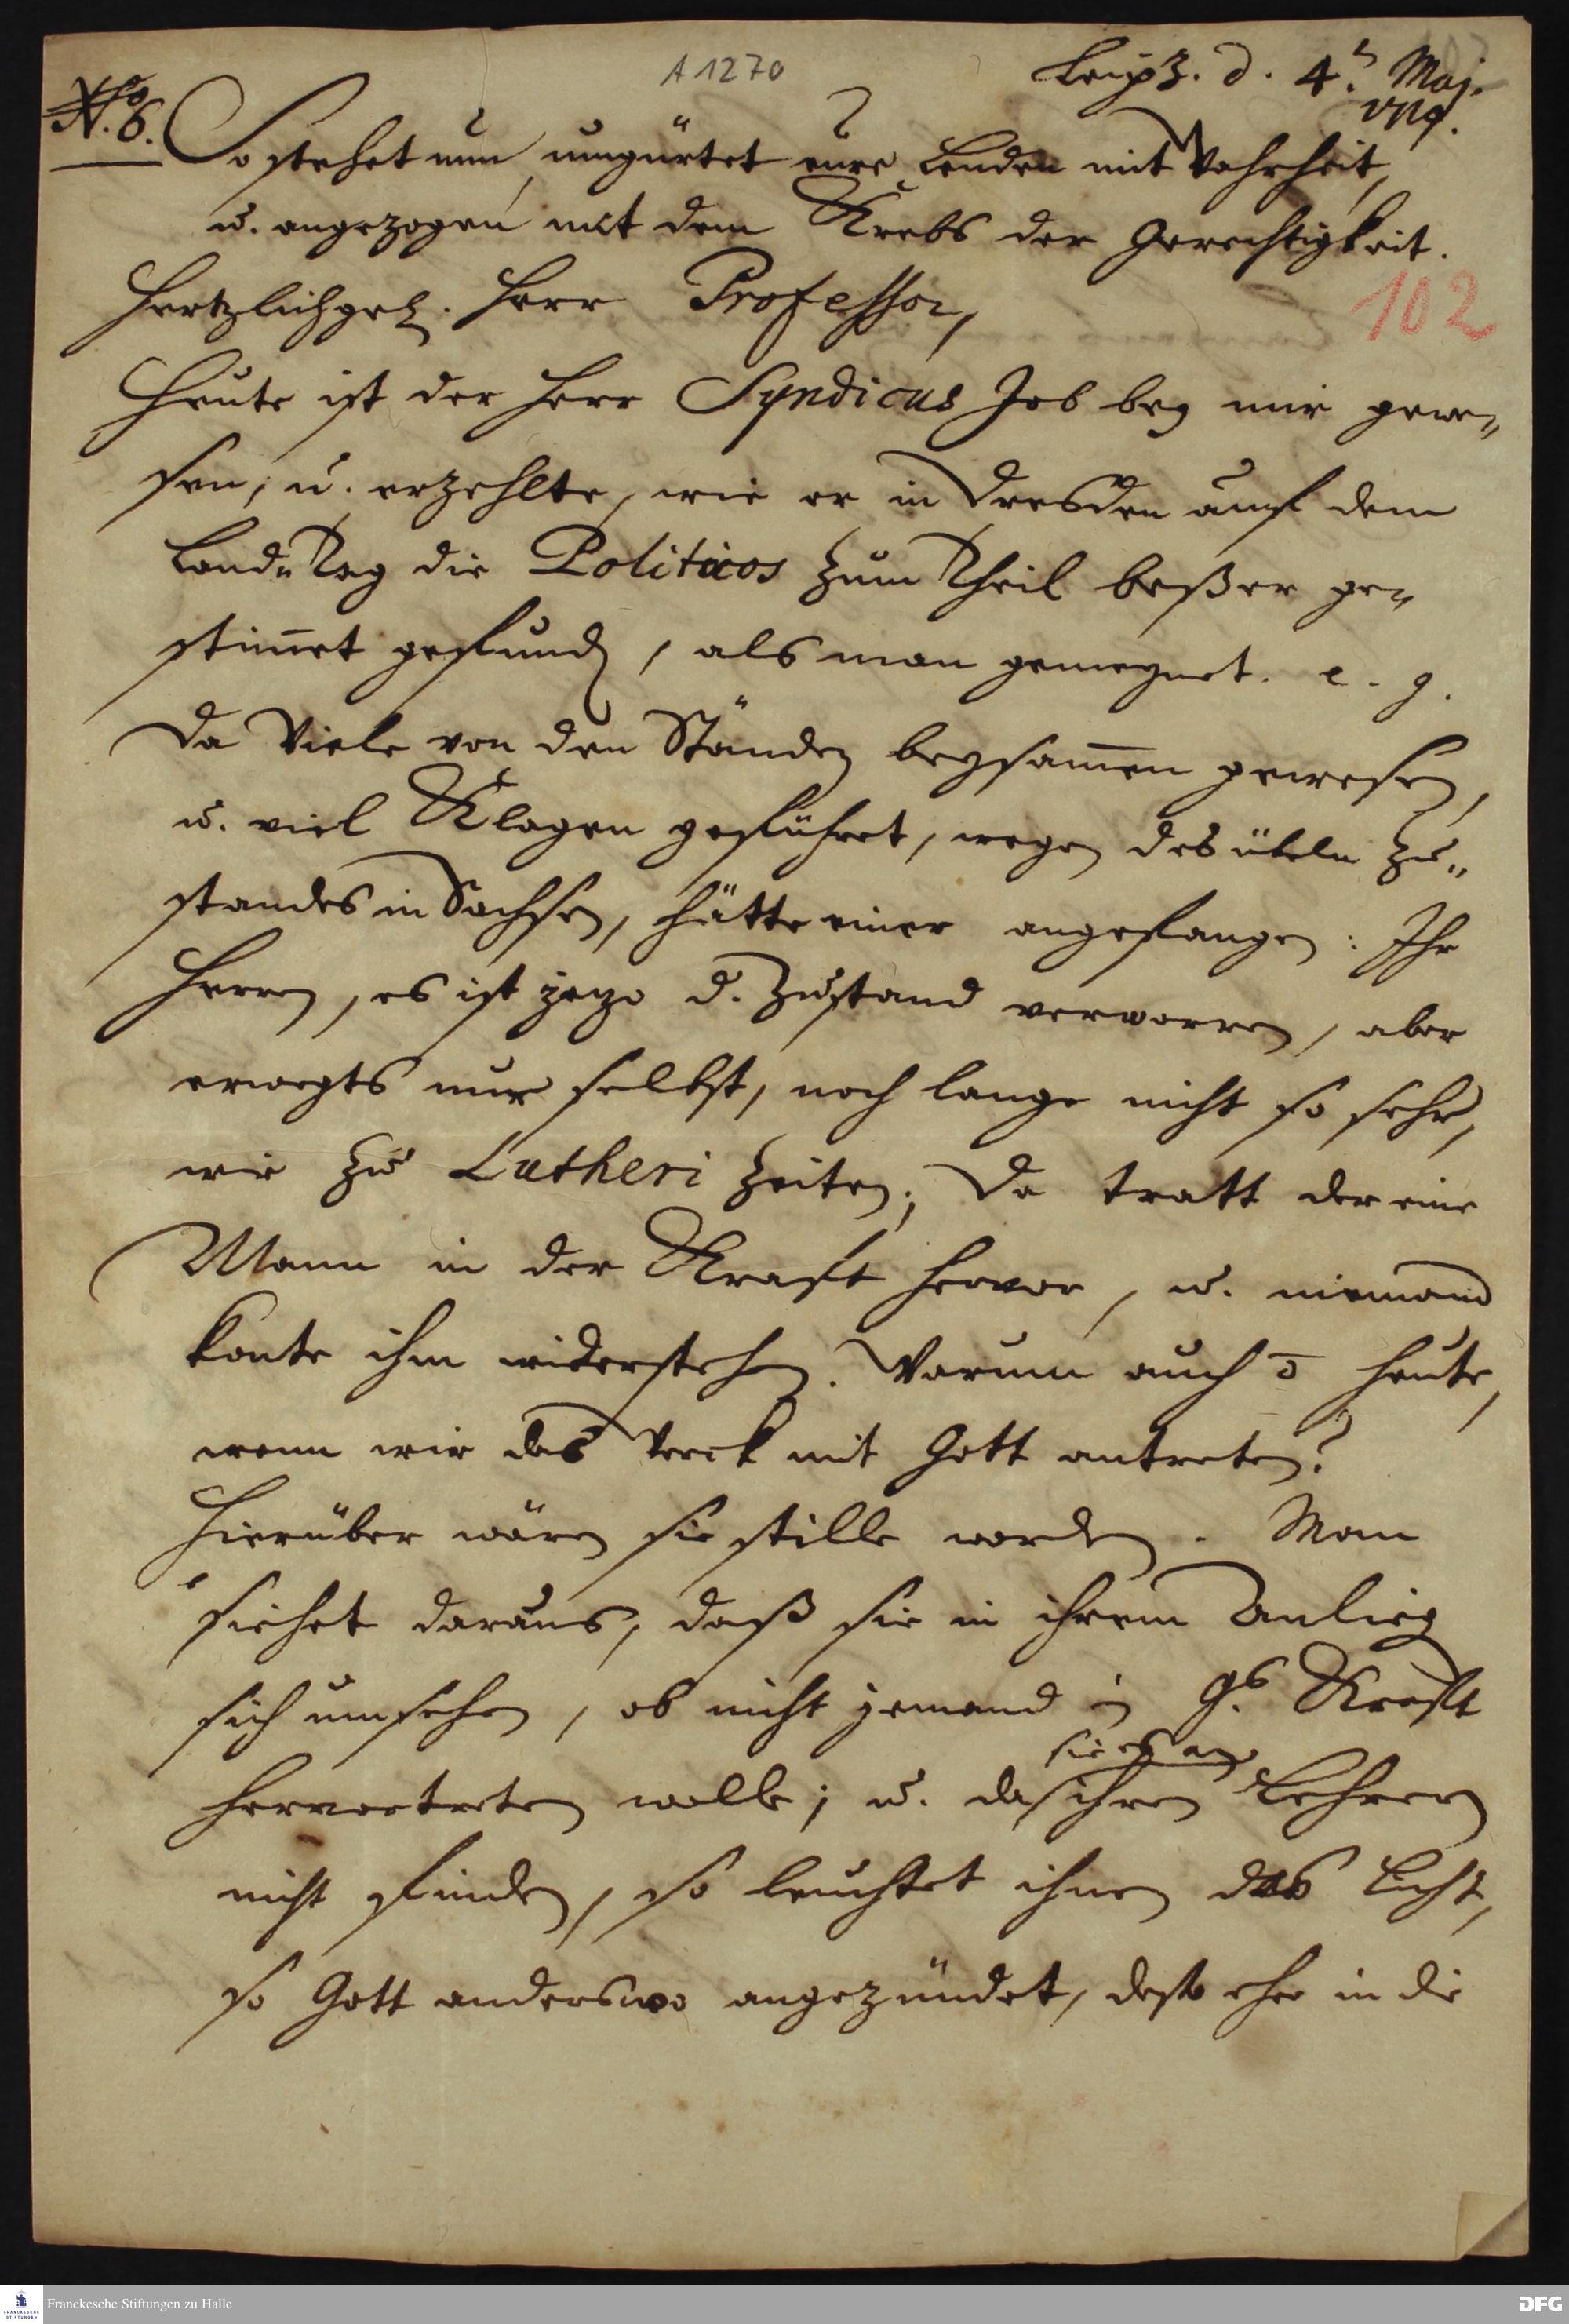 A 1270
Leipz. d. 4. Maj.
No. 6.
1719.
So stehet nun, umgürtet eure Lenden mit Wahrheit,
u. angezogen mit dem Krebs der Gerechtigkeit.
102
Hertzlichgel. Herr Professor,
Heute ist der Herr Syndicus Job bey mir gewe„
sen, u. erzehlte, wie er in Dresden auf dem
Land„Tag die Politicos zum Theil beßer ge„
stim̄et gefunden, als man gemeynet. e. g.
Da Viele von den Ständen beysam̄en gewesen,
u. viel Klagen geführet, wegen des übeln Zu„
standes in Sachsen, hätte einer angefangen: Ihr
Herren, es ist jezo d. Zustand verworren, aber
erwegts nur selbst, noch lange nicht so sehr,
wie zu Lutheri Zeiten; Da tratt der eine
Mann in der Krafft hervor, u. niemand
konte ihm widerstehen. Warum auch ō heute,
wenn wir das Werck mit Gott antreten?
Hierüber wären sie stille worden. Man
siehet daraus, daß sie in ihrem Anliegen
sich umsehen, ob nicht jemand in G. Krafft
sie es an
hervortreten wolle; u. da ihren Lehrern
nicht finden, so leuchtet ihnen das Licht,
so Gott anderswo angezündet, desto eher in die
Franckesche Stiftungen zu Halle
DFG